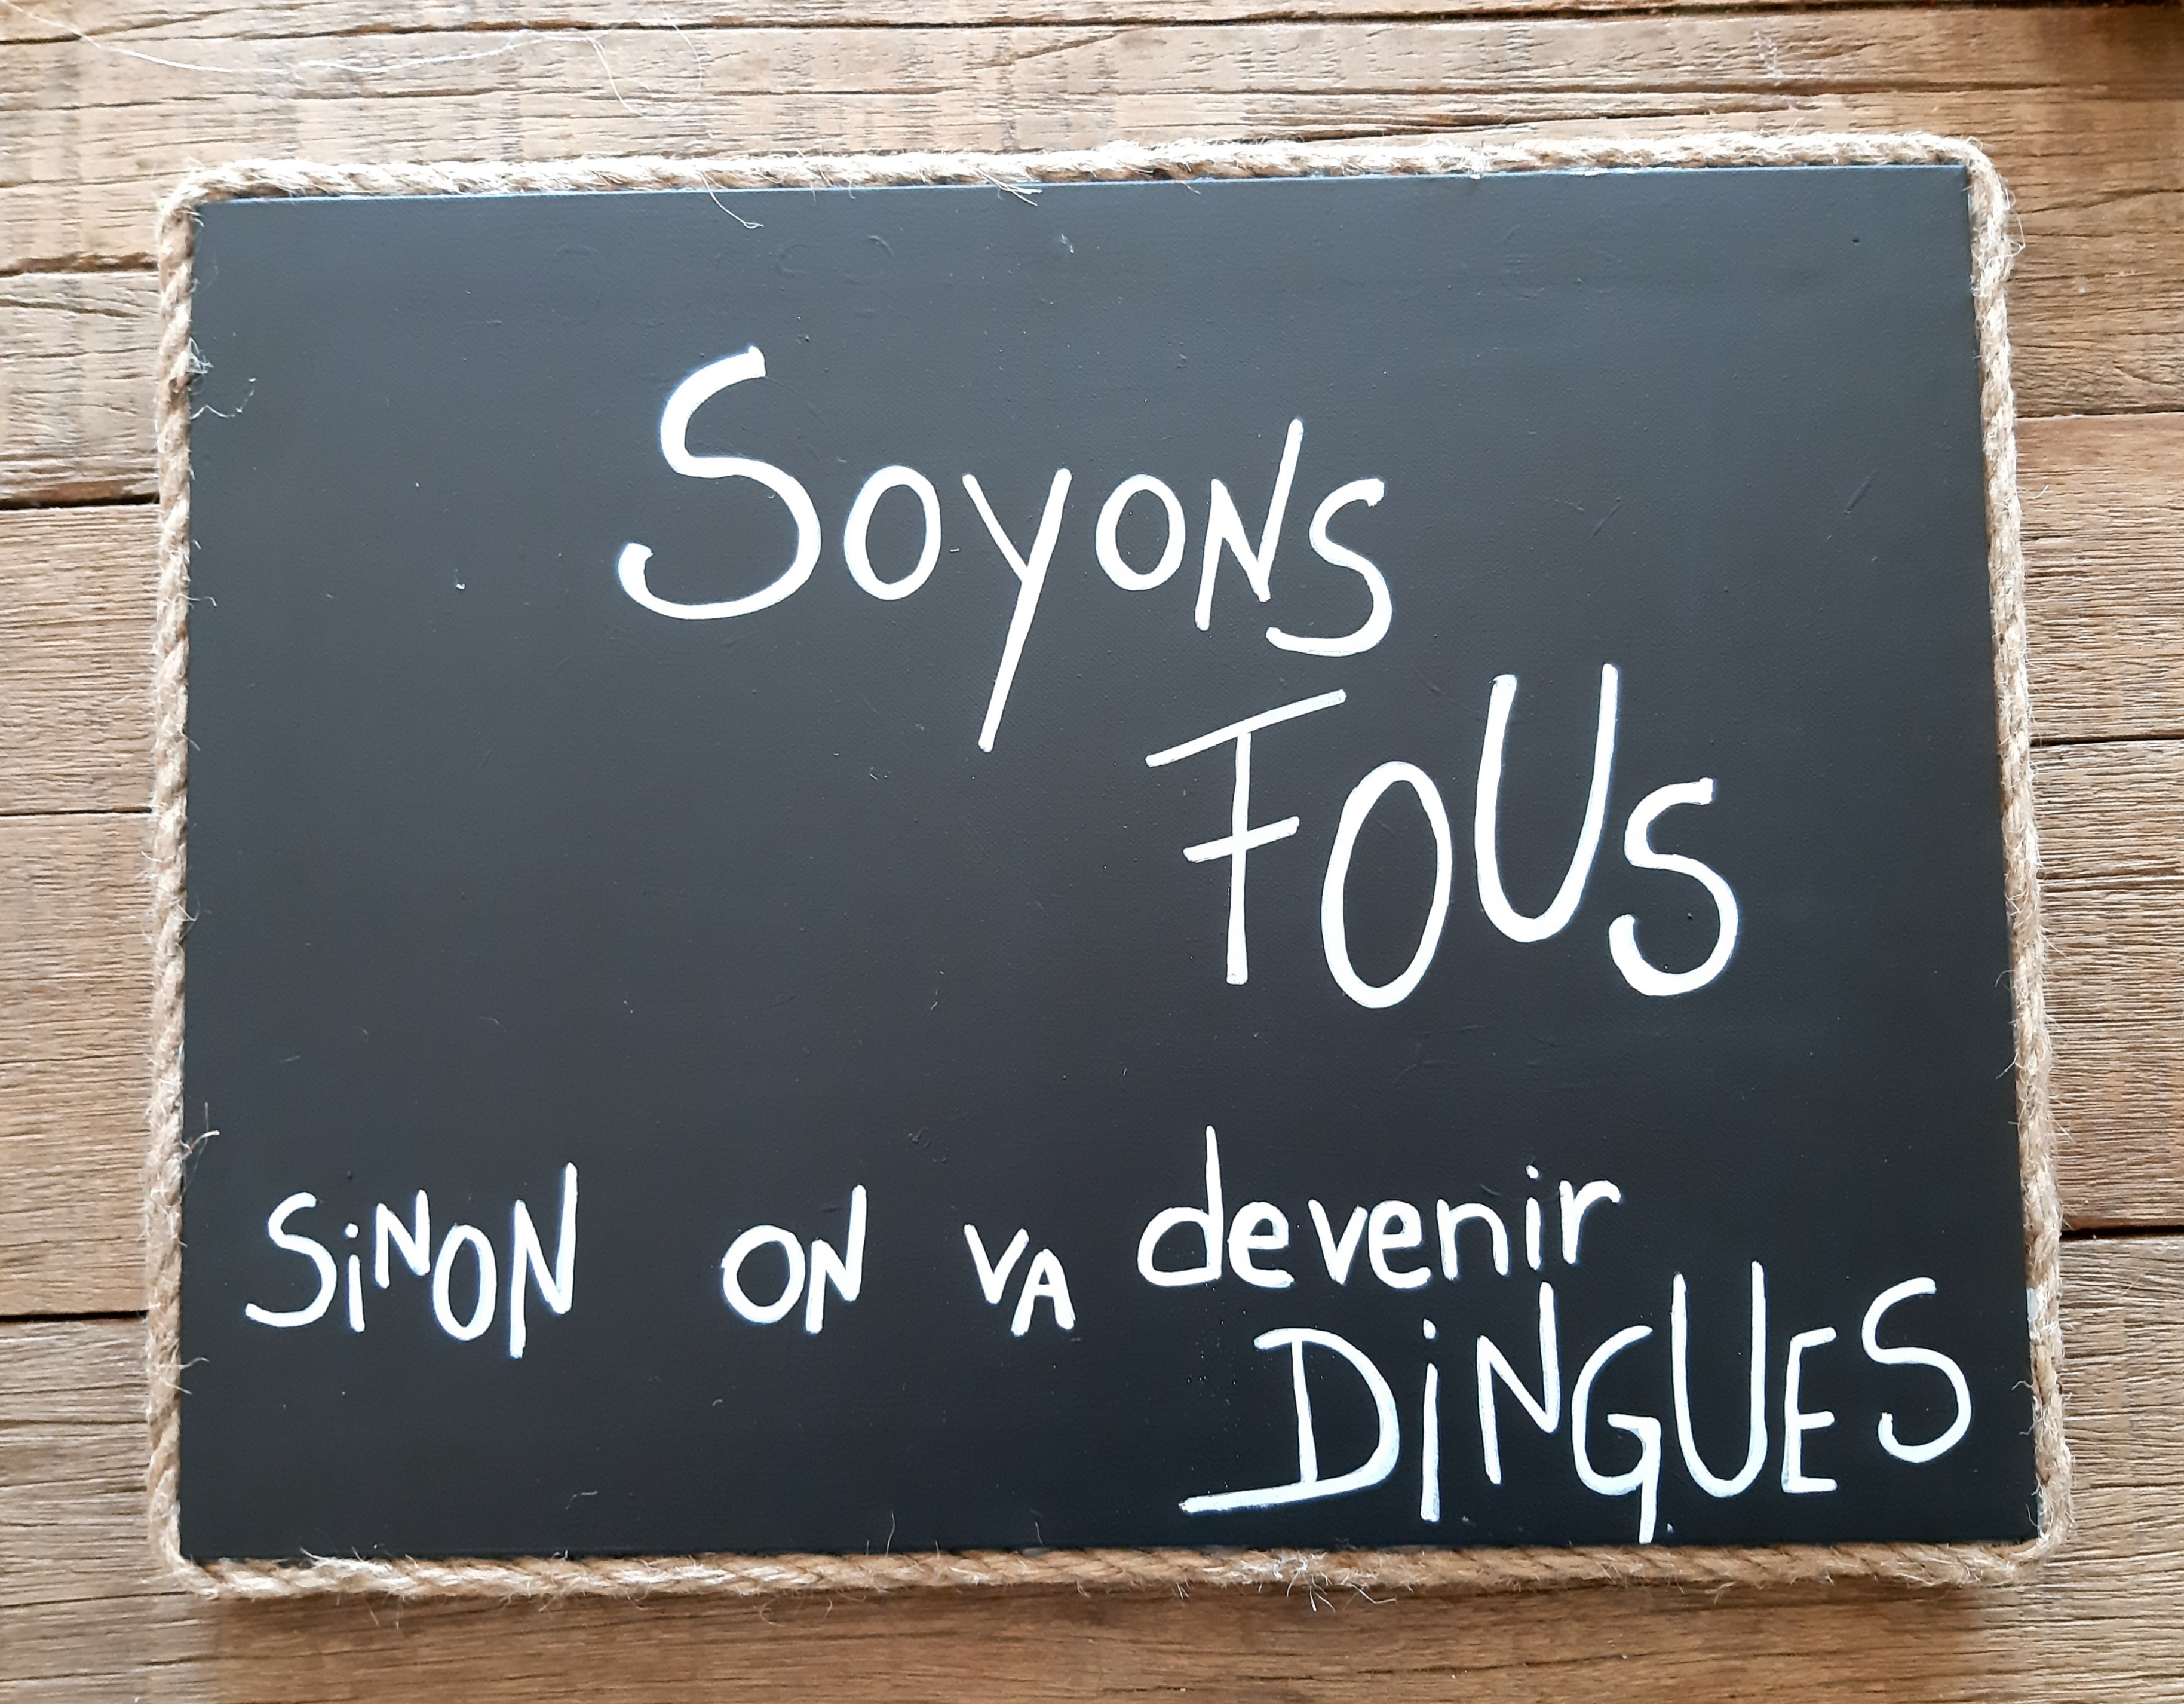 Soyons
FOUS
SiNON ON VA devenir
DiNGUES